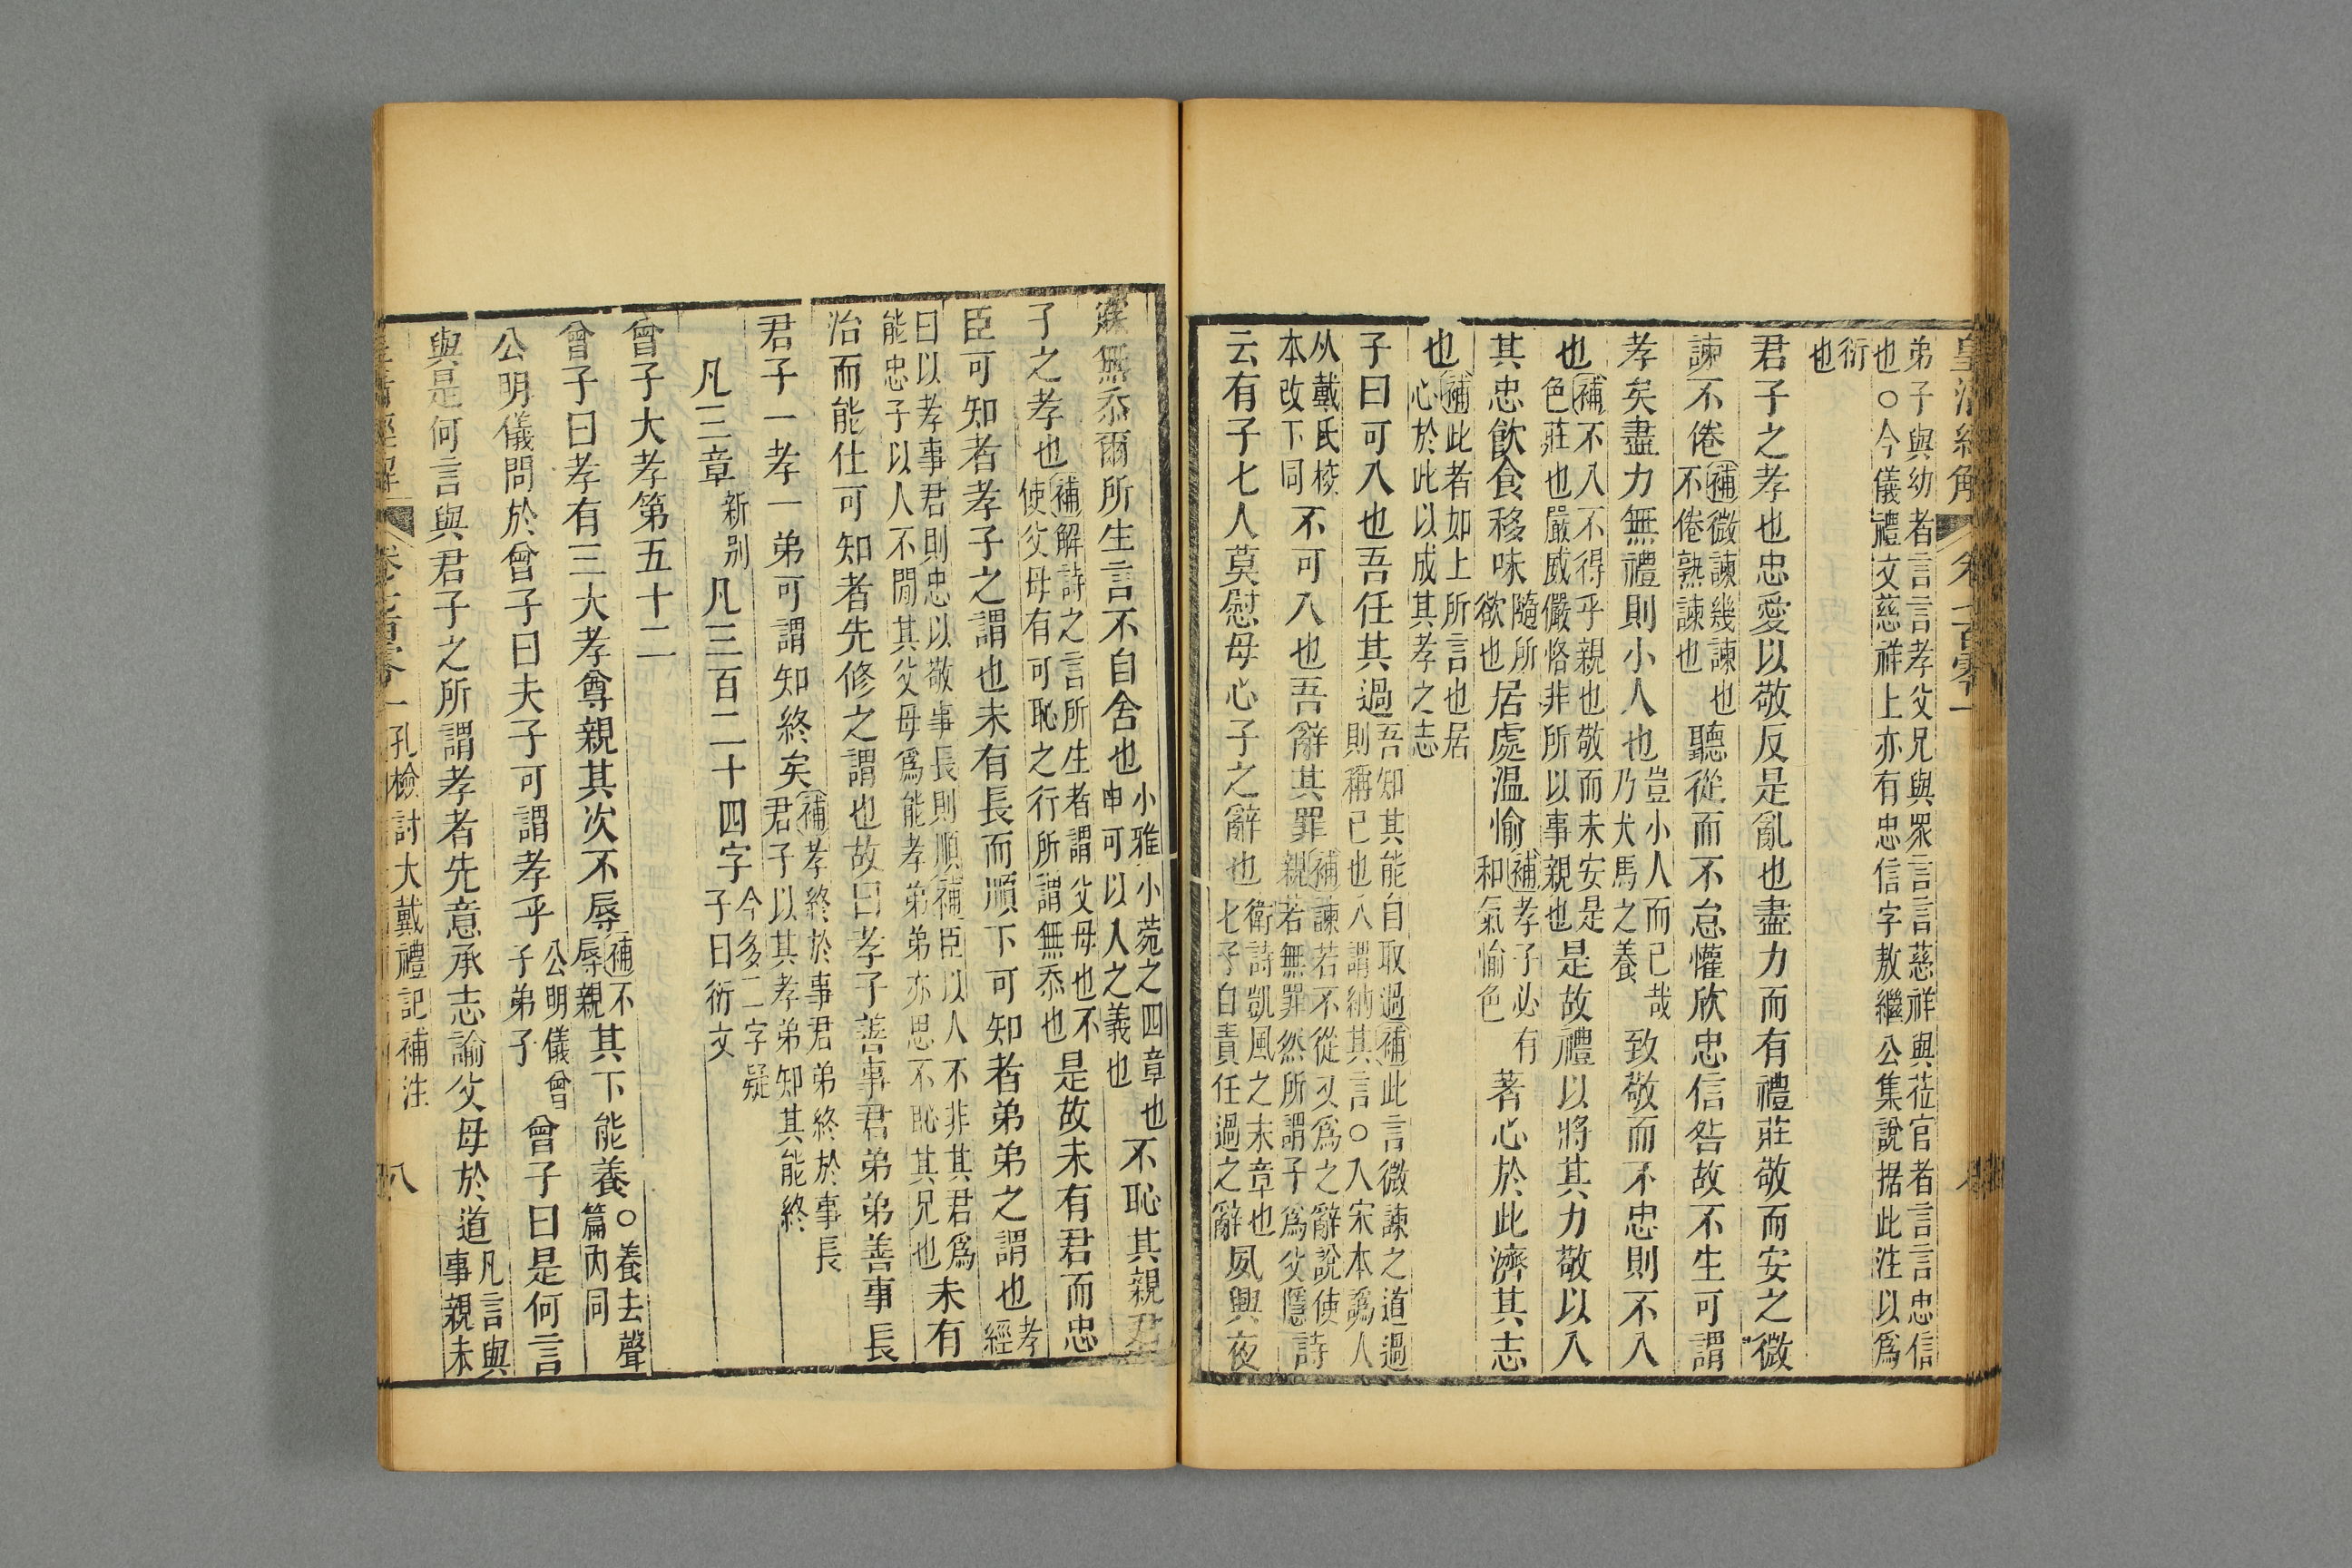 皇清經解 卷七百零一
弟子與幼者言言孝父兄與眾言言慈祥與莅官者言言忠信
也○今儀禮文慈祥上亦有忠信字敖繼公集說据此注以爲
衍
也
君子之孝也忠愛以敬反是亂也盡力而有禮莊敬而安之微
諫不倦補微諫幾諫也不倦熟諫也聽從而不怠懽欣忠信咎故不生可謂
孝矣盡力無禮則小人也豈小人而已哉乃犬馬之養致敬而不忠則不入
也補不入不得乎親也敬而未安是色莊也嚴威儼恪非所以事親也是故禮以將其力敬以入
其忠飲食移味隨所欲也居處温愉補孝子必有和氣愉色著心於此濟其志
也補此者如上所言也居心於此以成其孝之志
子曰可入也吾任其過吾知其能自取過補此言微諫之道過則稱己也入謂納其言○入宋本譌人
从戴氏挍本改下同不可入也吾辭其罪補諫若不從又爲之辭說使親若無罪然所謂子爲父隱詩
云有子七人莫慰母心子之辭也衛詩凱風之末章也七子自責任過之辭夙興夜
寐無忝爾所生言不自舍也小雅小菀之四章也申可以入之義也不恥其親君
子之孝也補解詩之言所生者謂父母也不使父母有可恥之行所謂無忝也是故未有君而忠
臣可知者孝子之謂也未有長而順下可知者弟弟之謂也孝經
曰以孝事君則忠以敬事長則順補臣以人不非其君爲能忠子以人不閒其父母爲能孝弟弟亦思不恥其兄也未有
治而能仕可知者先修之謂也故曰孝子善事君弟弟善事長
君子一孝一弟可謂知終矣補孝終於事君弟終於事長君子以其孝弟知其能終
凡三章新别凡三百二十四字今多二字疑子曰衍文
曾子大孝第五十二
曾子曰孝有三大孝尊親其次不辱補不辱親其下能養○養去聲篇內同
公明儀問於曾子曰夫子可謂孝乎公明儀曾子弟子曾子曰是何言
與是何言與君子之所謂孝者先意承志諭父母於道凡言與事親未
皇清經解 卷七百零一 孔檢討大戴禮記補注 八